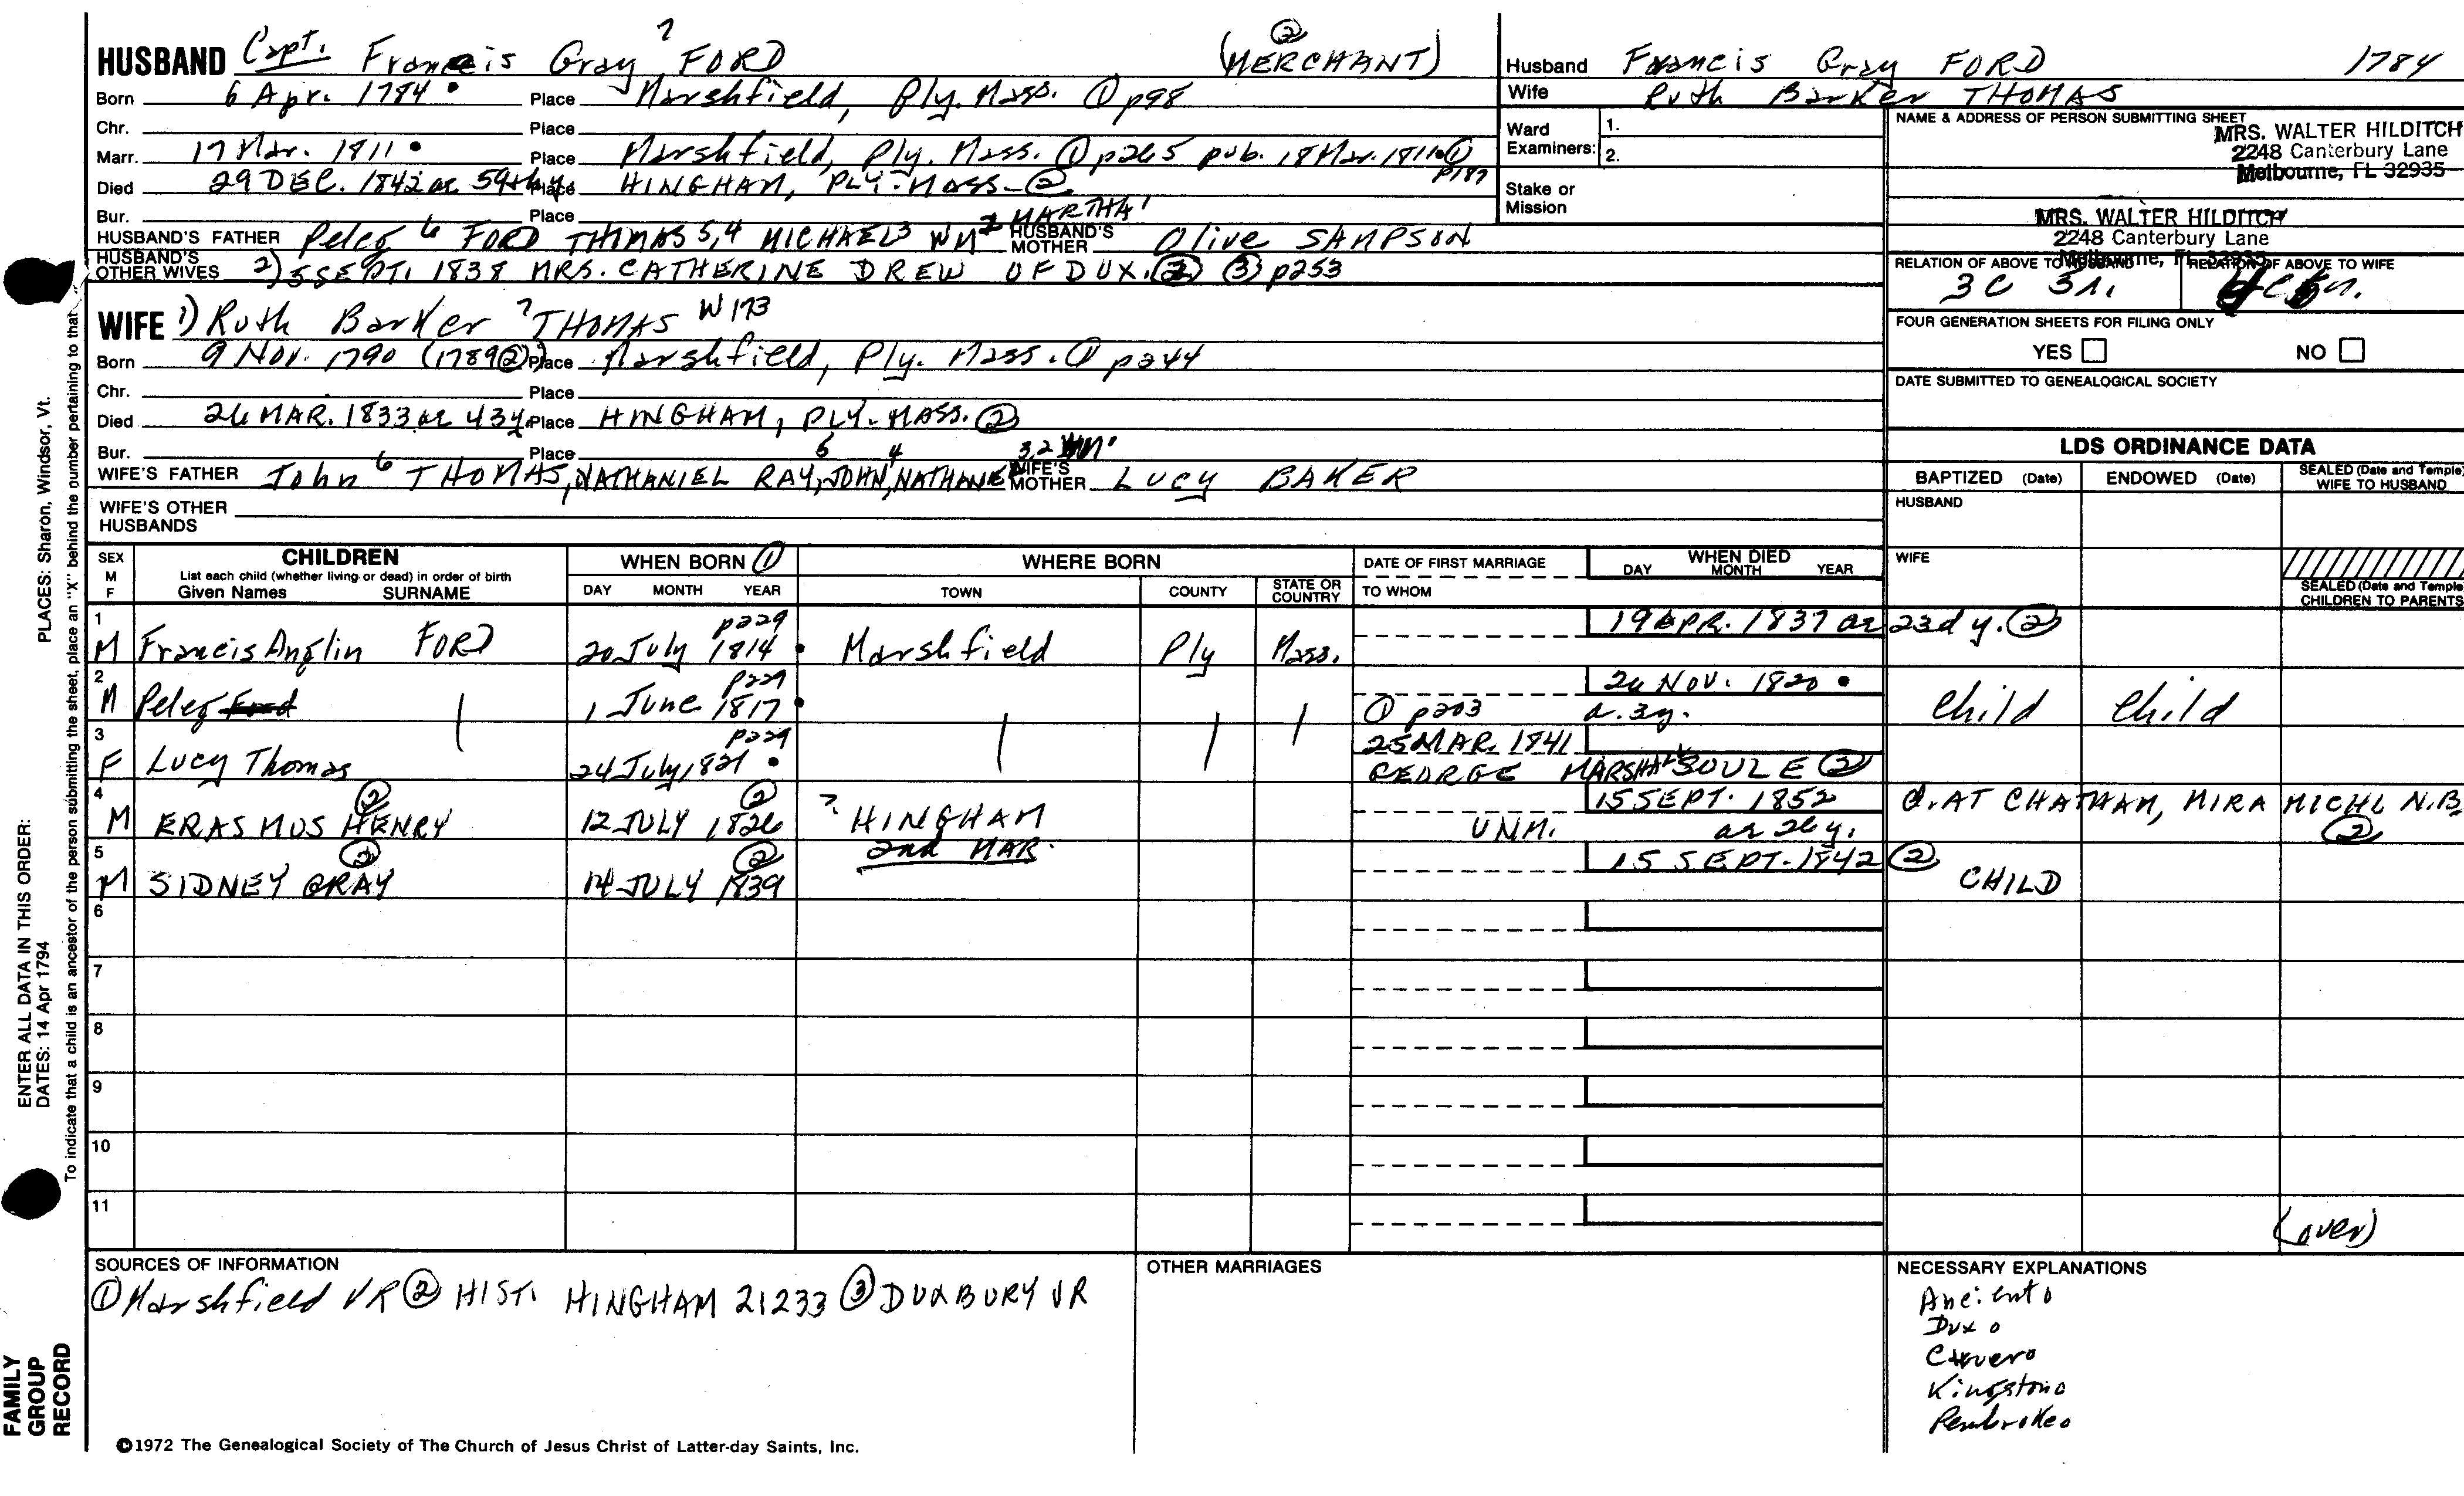 HUSBAND Capt. Francis Gray 7 FORD (MERCHANT) ②
Born 6 Apr. 1784 • Place Marshfield, Ply. Mass. ① p98
Chr. Place
Marr. 17 Mar. 1811 • Place Marshfield, Ply. Mass. ① p265 pub. 18 Mar. 1811 • ① p187
Died 29 DEC. 1842 ae 59th y Place HINGHAM, PLY. MASS. ②
Bur. Place
HUSBAND'S FATHER Peleg 6 FORD THOMAS 5,4 MICHAEL 3 WM 2 MARTHA 1 HUSBAND'S MOTHER Olive SAMPSON
HUSBAND'S OTHER WIVES 2) 5 SEPT. 1838 MRS. CATHERINE DREW OF DUX. ② ③ p253
WIFE 1) Ruth Barker 7 THOMAS W173
Born 9 Nov. 1790 (1789 ②) Place Marshfield, Ply. Mass. ① p244
Chr. Place
Died 26 MAR. 1833 ae 43 y. Place HINGHAM, PLY. MASS. ②
Bur. Place
WIFE'S FATHER John 6 THOMAS, NATHANIEL RAY 5, JOHN 4, NATHANIEL 3,2 WM 1 WIFE'S MOTHER LUCY BAKER
WIFE'S OTHER HUSBANDS
Husband Francis Gray FORD 1784
Wife Ruth Barker THOMAS
Ward Examiners: 1.
2.
Stake or Mission
NAME & ADDRESS OF PERSON SUBMITTING SHEET
MRS. WALTER HILDITCH
2248 Canterbury Lane
Melbourne, FL 32935
MRS. WALTER HILDITCH
2248 Canterbury Lane
Melbourne, FL 32935
RELATION OF ABOVE TO HUSBAND RELATION OF ABOVE TO WIFE
3C 5r.
FOUR GENERATION SHEETS FOR FILING ONLY
YES NO
DATE SUBMITTED TO GENEALOGICAL SOCIETY
LDS ORDINANCE DATA
BAPTIZED (Date) ENDOWED (Date) SEALED (Date and Temple) WIFE TO HUSBAND
HUSBAND
WIFE
SEALED (Date and Temple) CHILDREN TO PARENTS
SEX M F CHILDREN List each child (whether living or dead) in order of birth Given Names SURNAME
WHEN BORN ① DAY MONTH YEAR
WHERE BORN TOWN COUNTY STATE OR COUNTRY
DATE OF FIRST MARRIAGE TO WHOM
WHEN DIED DAY MONTH YEAR
1 M Francis Anglin FORD 20 July 1814 • p229 Marshfield Ply Mass. 19 APR. 1837 ae 23d y. ②
2 M Peleg Ford 1 June 1817 • p229 26 NOV. 1820 • ① p203 a. 3y. Child Child
3 F Lucy Thomas 24 July 1821 • p229 25 MAR. 1841 GEORGE MARSHALL SOULE ②
4 M ERASMUS HENRY ② 12 JULY 1826 ② ? HINGHAM UNM. 15 SEPT. 1852 ae 26 y. d. AT CHATHAM, MIRAMICHI N.B. ②
2nd MAR.
5 M SIDNEY GRAY ② 14 JULY 1839 ② 15 SEPT. 1842 ② CHILD
6
7
8
9
10
11
(over)
SOURCES OF INFORMATION
① Marshfield VR ② HIST. HINGHAM 21233 ③ DUXBURY VR
OTHER MARRIAGES
NECESSARY EXPLANATIONS
Ancient o
Dux o
Carver o
Kingston o
Pembroke o
©1972 The Genealogical Society of The Church of Jesus Christ of Latter-day Saints, Inc.
FAMILY GROUP RECORD
ENTER ALL DATA IN THIS ORDER:
DATES: 14 Apr 1794
PLACES: Sharon, Windsor, Vt.
To indicate that a child is an ancestor of the person submitting the sheet, place an "X" behind the number pertaining to that